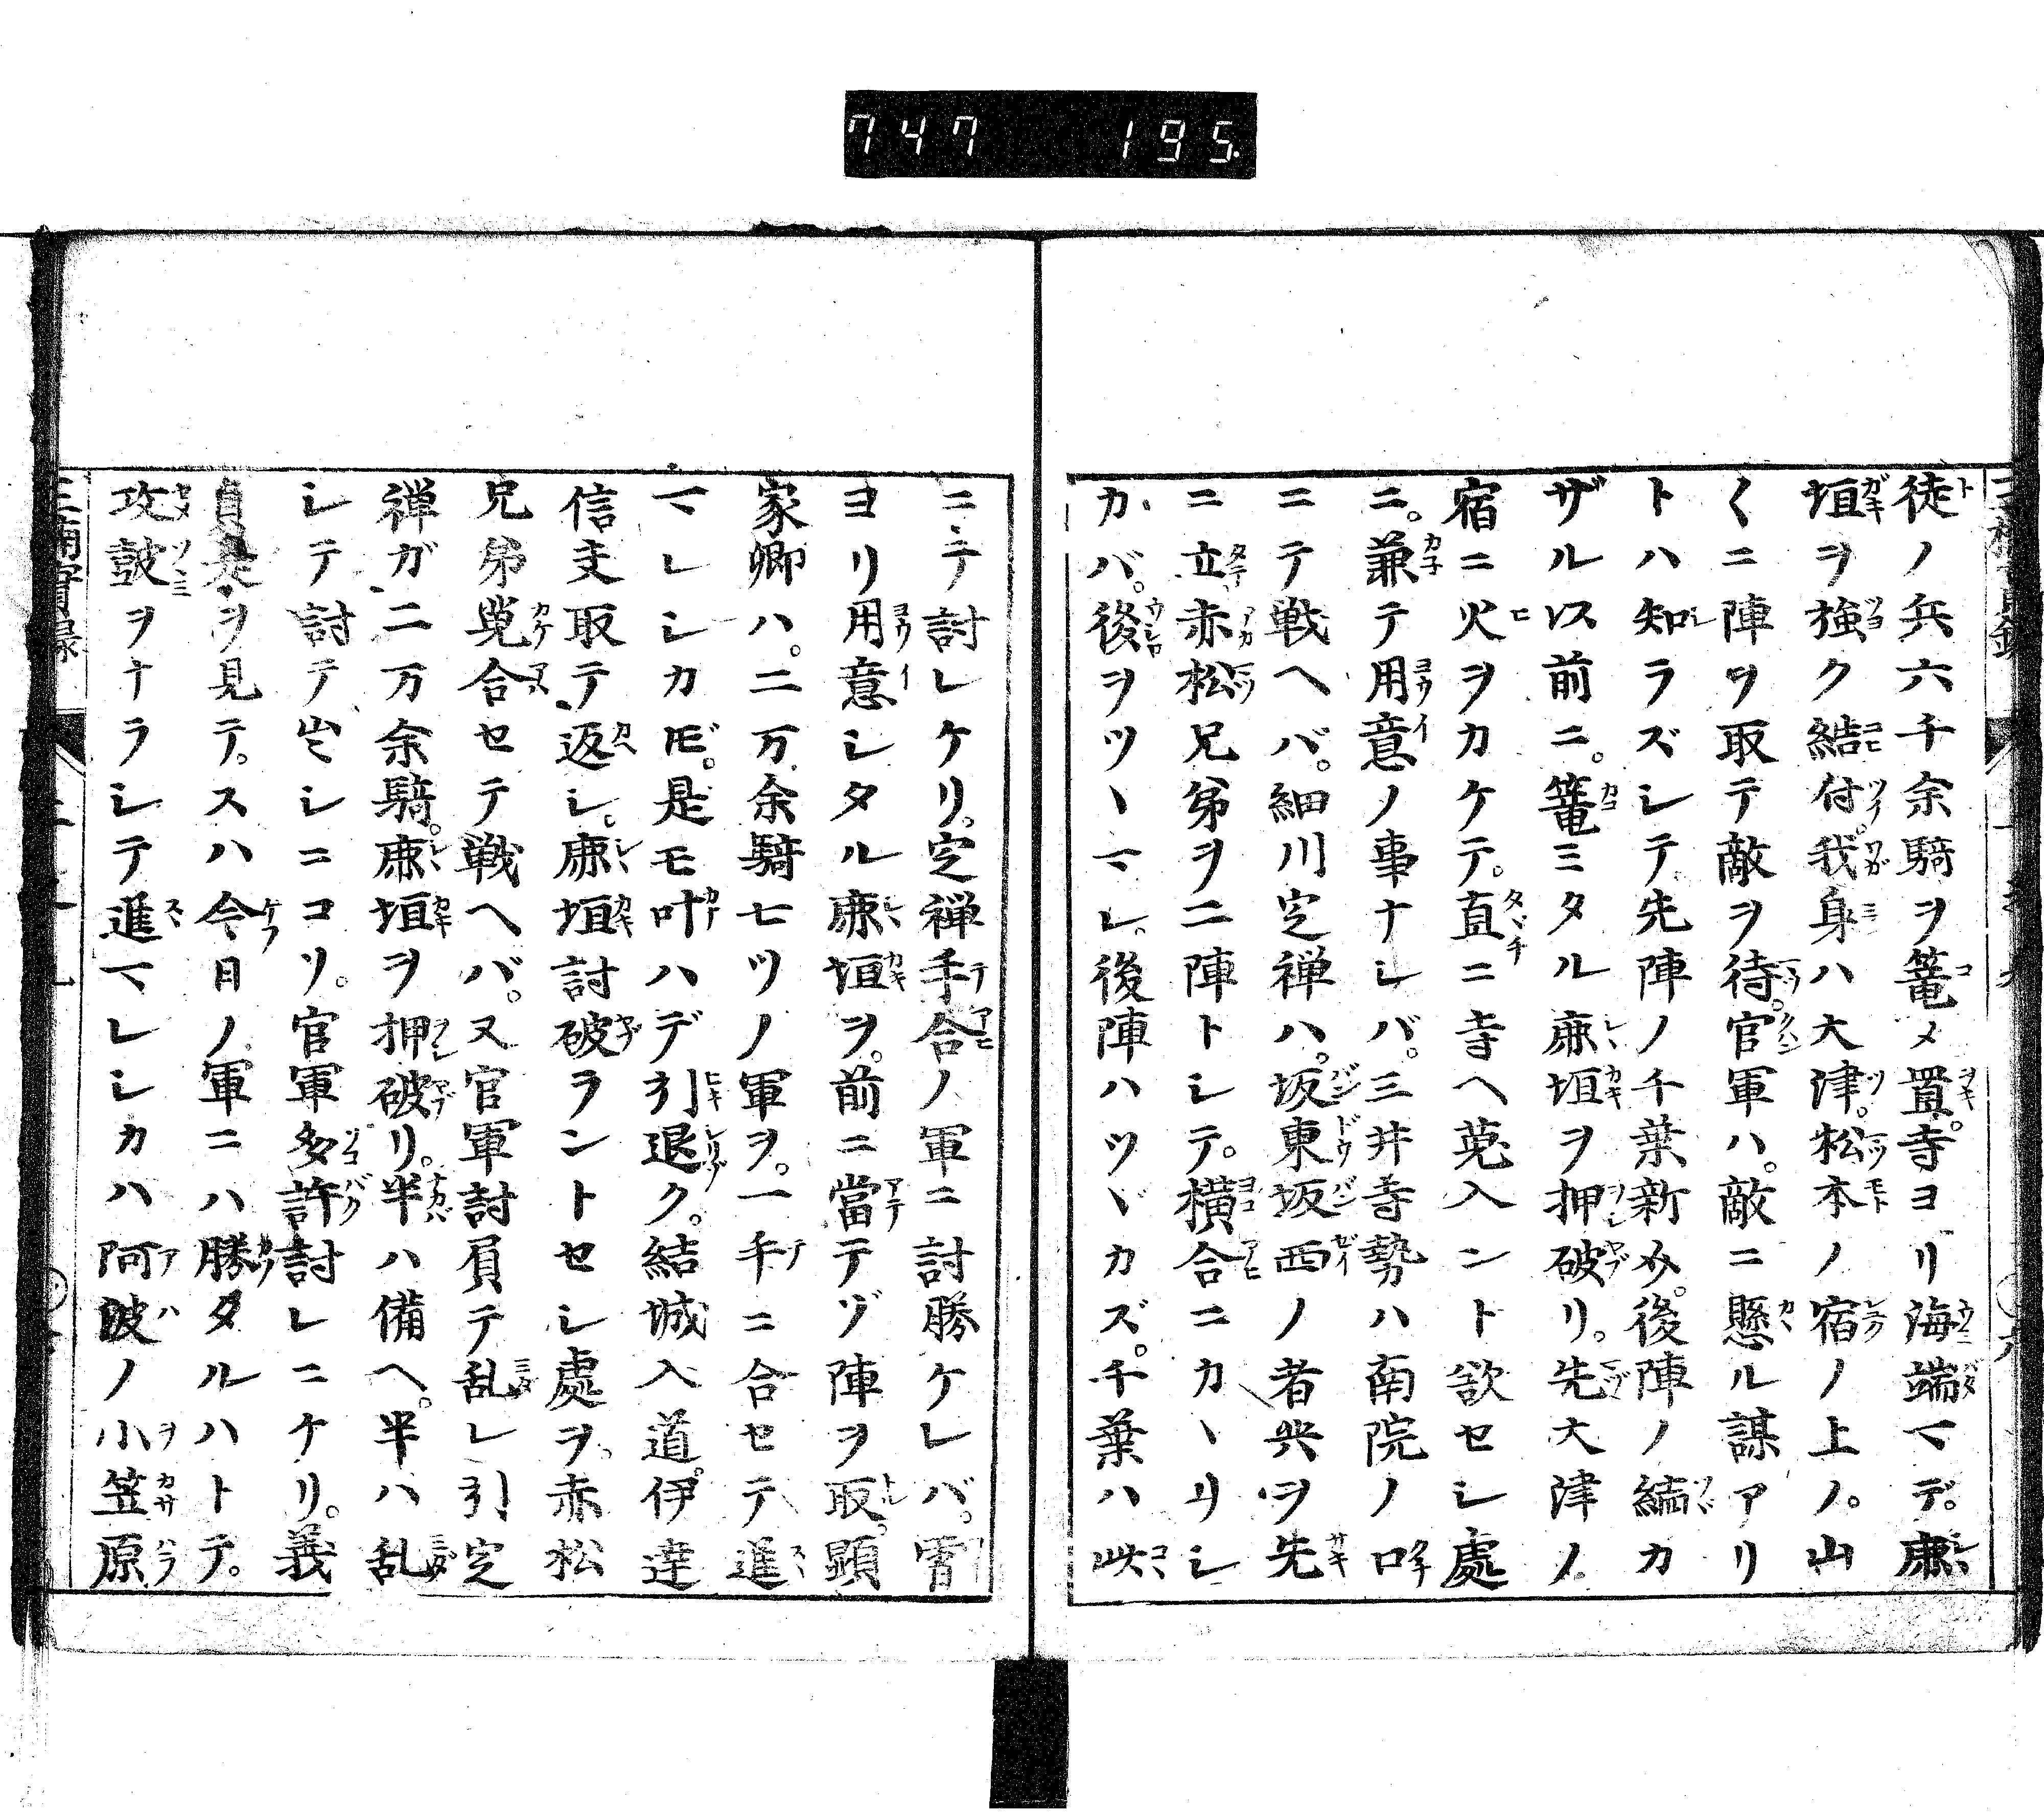 747 195
徒ノ兵六千余騎ヲ篭メ置。寺ヨリ海端マデ。𢉖
垣ヲ強ク結付。我身ハ大津。松本ノ宿ノ上ノ。山
〱ニ陣ヲ取テ敵ヲ待。官軍ハ。敵ニ懸ル謀アリ
トハ知ラズシテ先陣ノ千葉新介。後陣ノ結カ
ザル以前ニ。篭ミタル𢉖垣ヲ押破リ。先大津ノ
宿ニ火ヲカケテ。直ニ寺ヘ蒐入ント欲セシ處
ニ。兼テ用意ノ事ナレバ。三井寺勢ハ南院ノ口
ニテ戦ヘバ。細川定禅ハ。坂東坂西ノ者共ヲ先
ニ立。赤松兄弟ヲ二陣トシテ。横合ニカヽリシ
カバ。後ヲツヽマレ。後陣ハツヾカズ。千葉ハ此
ニテ討レケリ。定禅手合ノ軍ニ討勝ケレバ。宵
ヨリ用意シタル𢉖垣ヲ。前ニ當テヅ陣ヲ取。顕
家卿ハ。二万余騎七ツノ軍ヲ。一手ニ合セテ進
マレシカ𪜈。是モ叶ハデ引退ク。結城入道。伊達
信夫取テ返シ。𢉖垣討破ラントセシ處ヲ。赤松
兄弟蒐合セテ戦ヘバ。又官軍討負テ乱レ引定
禅ガ二万余騎。𢉖垣ヲ押破リ。半ハ備ヘ。半ハ乱
シテ討テ出シニコソ。官軍多許討レニケリ。義
貞是ヲ見テ。スハ今日ノ軍ニハ勝タルハトテ。
攻鼓ヲナラシテ進マレシカハ阿波ノ小笠原